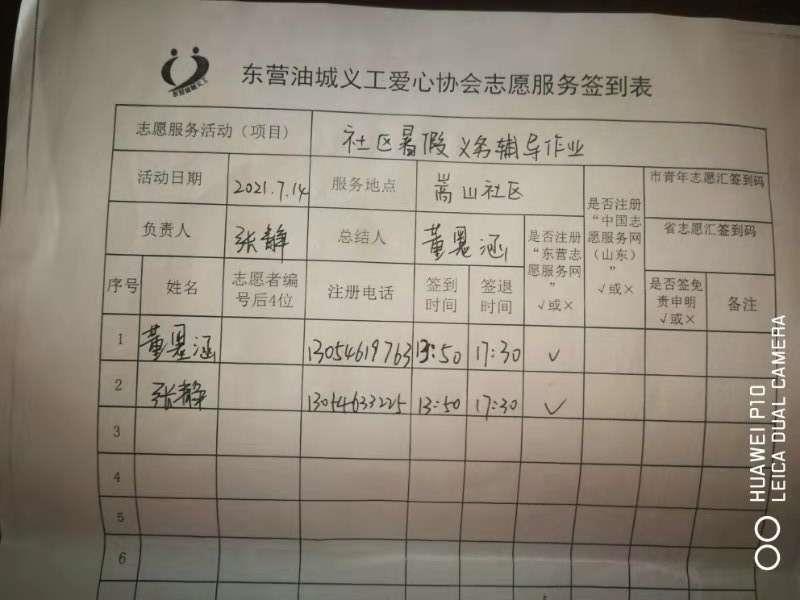 东营油城义工
东营油城义工爱心协会志愿服务签到表
志愿服务活动（项目） 社区暑假义务辅导作业
活动日期 2021.7.14 服务地点 嵩山社区 是否注册“中国志愿服务网（山东）”√或× 市青年志愿汇签到码
负责人 张静 总结人 董恩涵 是否注册“东营志愿服务网”√或× 省志愿汇签到码
序号 姓名 志愿者编号后4位 注册电话 签到时间 签退时间 是否签免责申明√或× 备注
1 董恩涵 13054619763 13:50 17:30 √
2 张静 13:50 17:30 √
3
4
5
6
HUAWEI P10
LEICA DUAL CAMERA